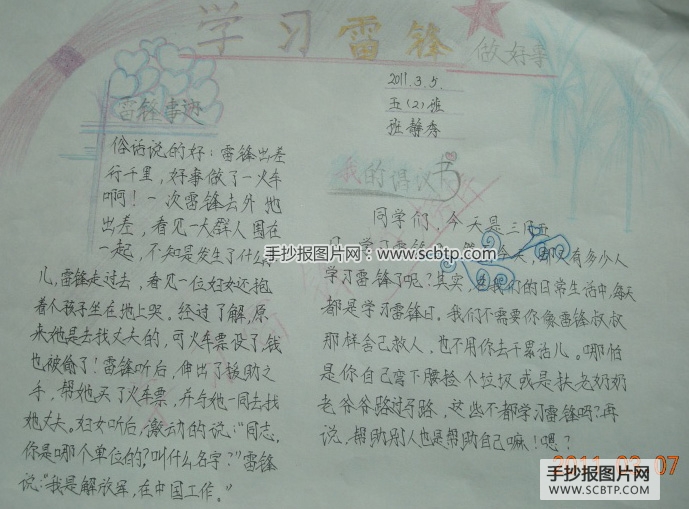 学习雷锋
做好事
2011.3.5.
五(2)班
张静秀
雷锋事迹
俗话说的好:雷锋出差
行千里,好事做了一火车
啊!一次雷锋去外地
出差,看见一大群人围在
一起,不知是发生了什么事
儿,雷锋走过去,看见一位妇女还抱
着个孩子坐在地上哭。经过了解,原
来她是去找丈夫的,可火车票没了,钱
也被偷了!雷锋听后,伸出了援助之
手,帮她买了火车票,并与她一同去找
她丈夫。妇女听后,激动的说:“同志,
你是哪个单位的?叫什么名字?”雷锋
说:“我是解放军,在中国工作。”
我的倡议书
同学们,今天是三月五
日,学习雷锋 今天,却又有多少人
学习雷锋了呢?其实,在我们的日常生活中,每天
都是学习雷锋日。我们不需要你像雷锋叔叔
那样舍己救人,也不用你去干累活儿。哪怕
是你自己弯下腰捡个垃圾或是扶老奶奶
老爷爷路过马路,这些不都学习雷锋吗?再
说,帮助别人也是帮助自己嘛!嗯?
手抄报图片网:www.scbtp.com
手抄报图片网
www.SCBTP.com